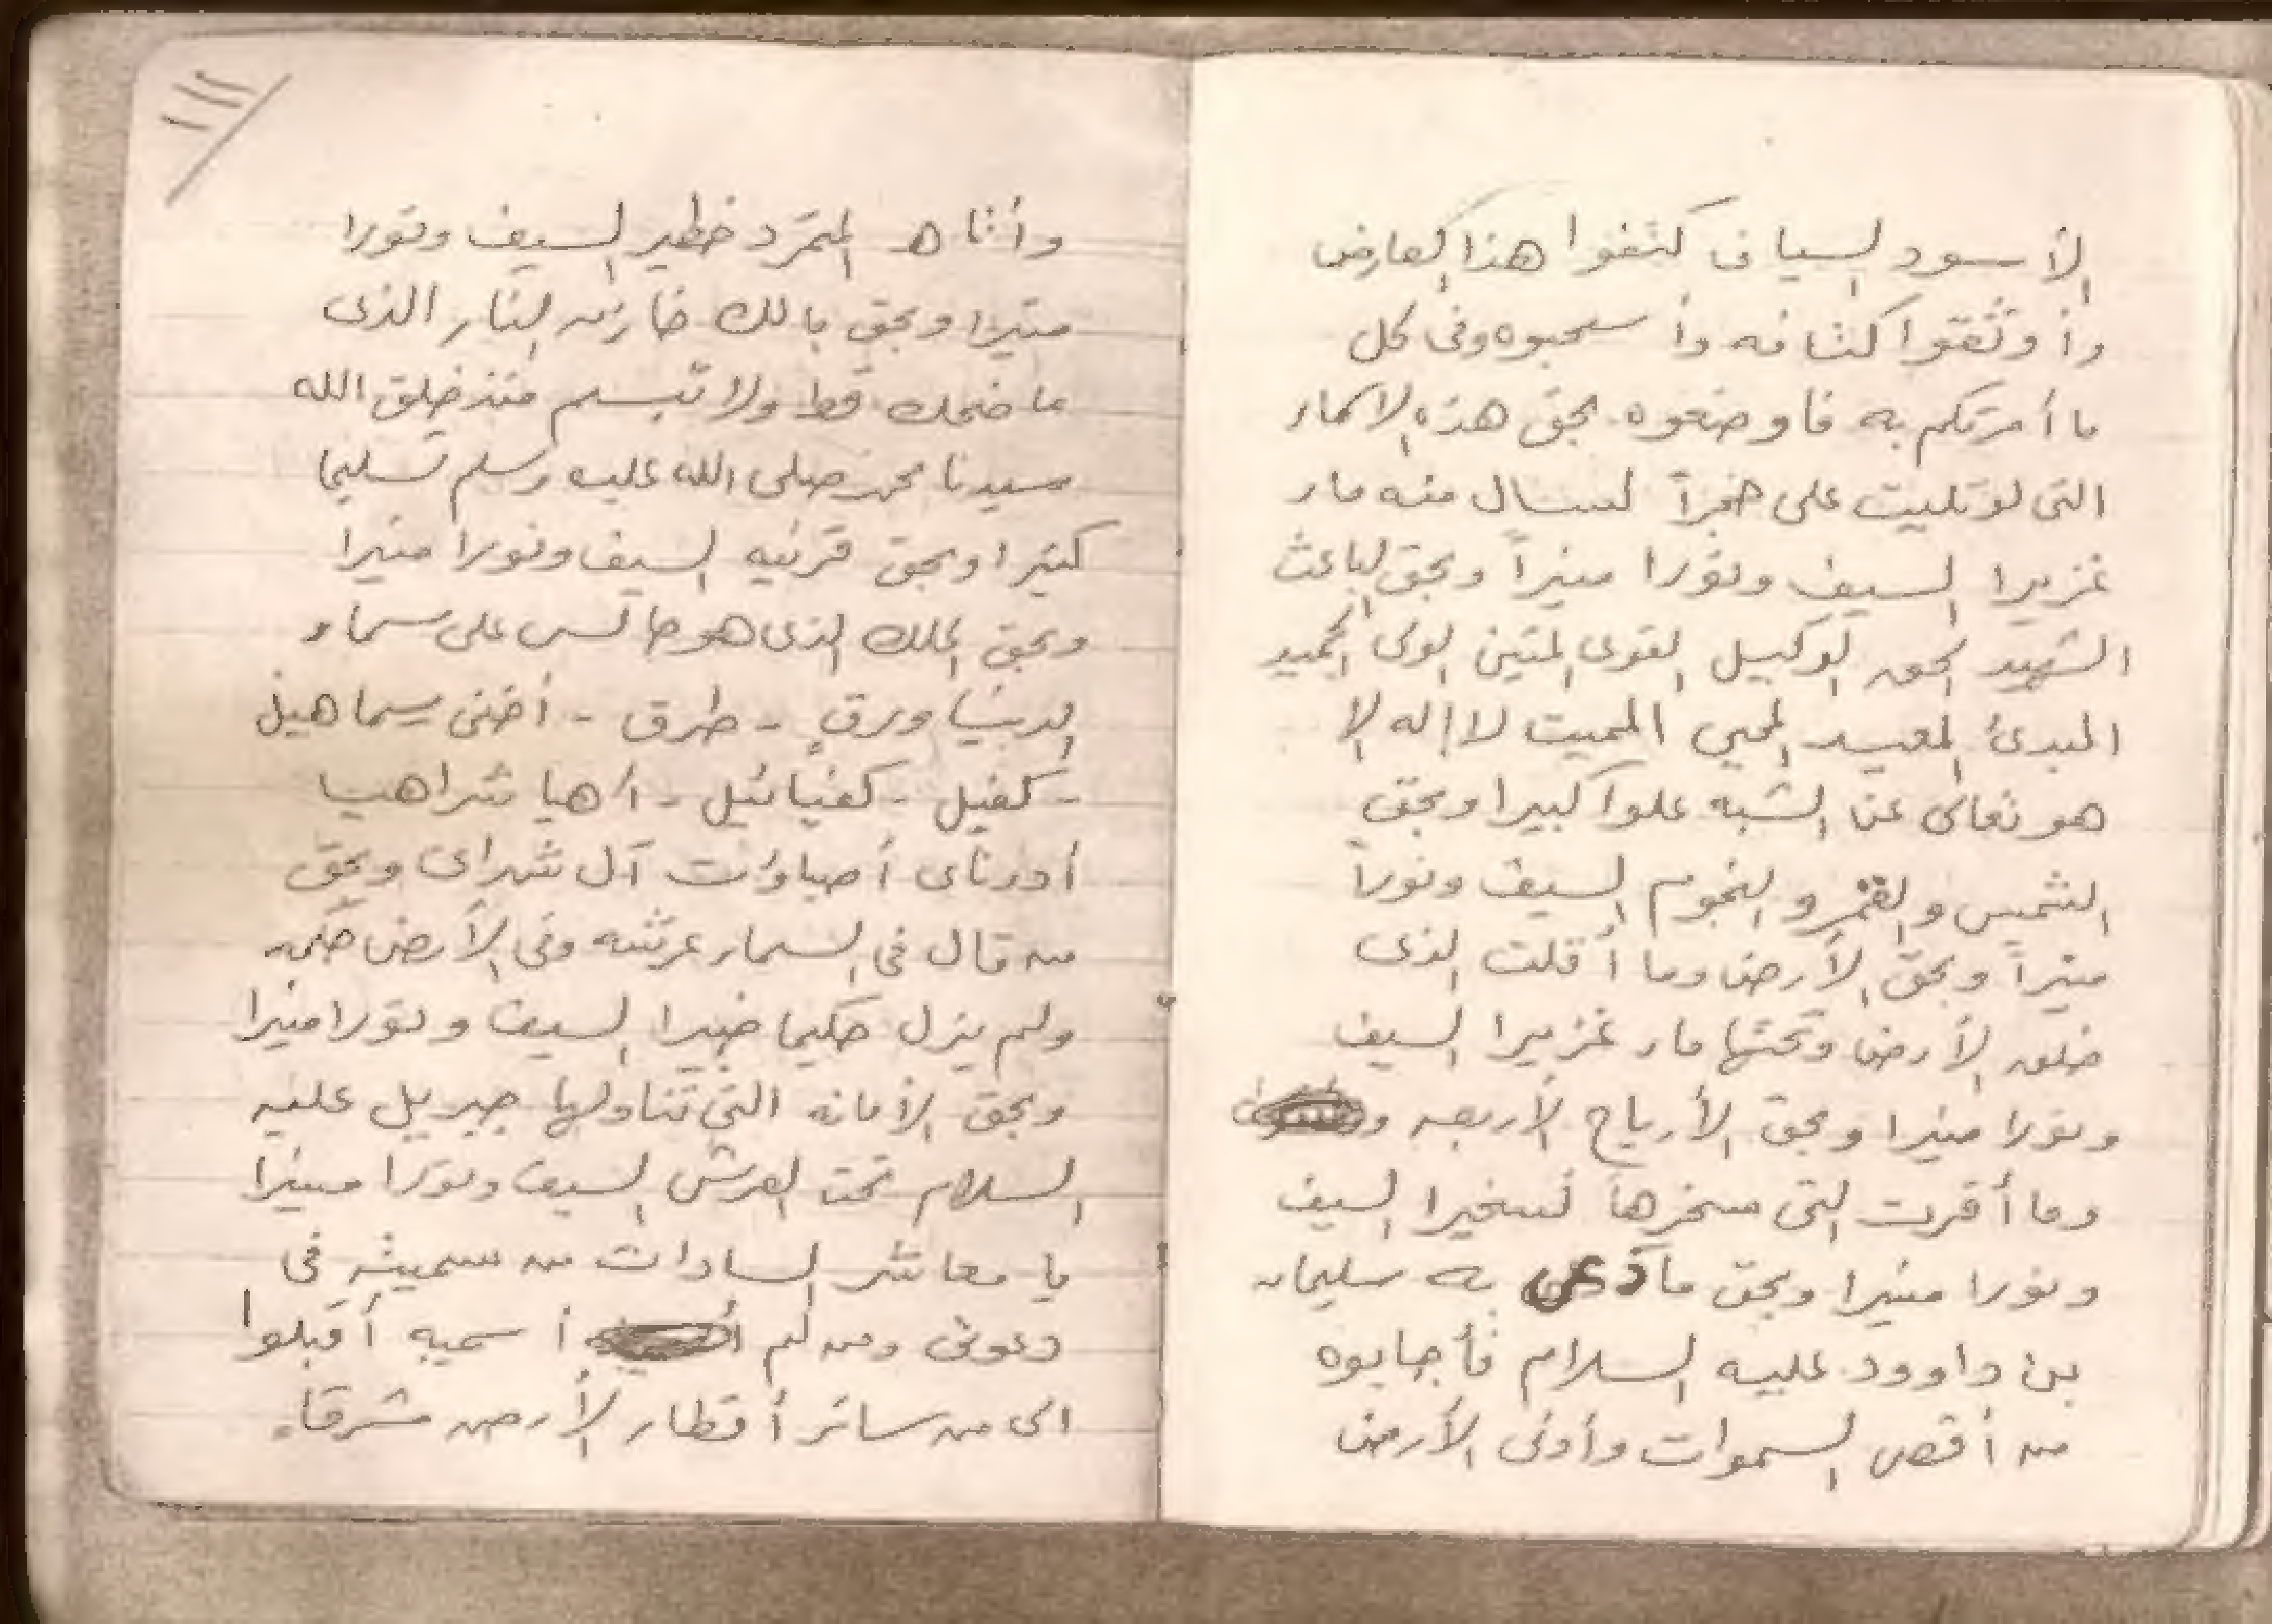 الأسود السياف كتفوا هذا العارض
وأوثقوا كتافه وأسحبوه وفى كل
ما أمرتكم به فاوضعوه بحق هذه الاسماء
التى لو تليت على حجراً لسال منه ماء
غزيرا السيف ونورا منيراً وبحق الباعث
الشهيد الحق الوكيل القوى المتين الولى الحميد
المبدئ المعيد المحيي المميت لا إله إلا
هو تعالى عن الشبه علوا كبيرا وبحق
الشمس والقمر والنجوم السيف ونوراً
منيراً وبحق الأرض وما أقلت الذى
خلق الأرض وتحتها ماء غزيرا السيف
ونورا منيرا وبحق الأرياح الأربعه
وما أقرت التى سخرها تسخيرا السيف
ونورا منيرا وبحق ما دعى به سليمان
بن داوود عليه السلام فأجابوه
من أقصى السموات وأدنى الأرض
١١١
وأتاه المتمرد خطير السيف ونورا
منيرا وبحق مالك خازن النار الذى
ما ضحك قط ولا تبسم منذ خلق الله
سيدنا محمد صلى الله عليه وسلم تسليما
كثيرا وبحق قرنيه السيف ونورا منيرا
وبحق الملك الذى هو جالس على سماء
الدنيا ورق - طرق - أخنى سماهيل
- كفيل - كفيائيل - أهيا شراهيا
أدوناى أصباؤت آل شداى وبحق
من قال فى السماء عرشه وفى الأرض حكمه
ولم يزل حكيما خبيرا السيف ونورا منيرا
وبحق الأمانه التى تناولها جبريل عليه
السلام تحت العرش السيف ونورا منيرا
يا معاشر السادات من سميته فى
دعوتى ومن لم أسميه أقبلوا
الى من سائر أقطار الأرض مشرقاً